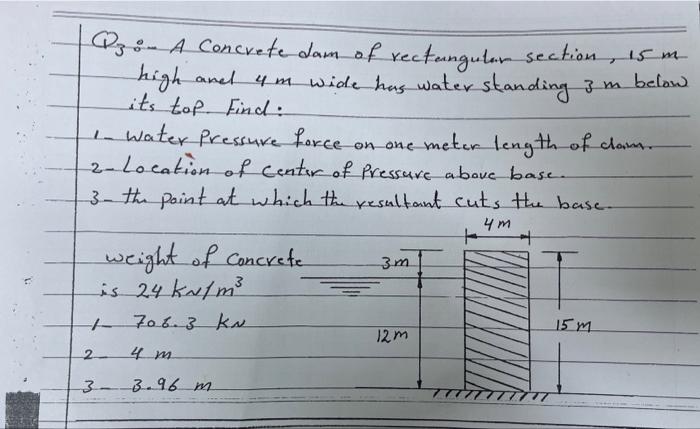 Q3:- A Concrete dam of rectangular section, 15 m
high and 4 m wide has water standing 3 m below
its top. Find:
1- water Pressure force on one meter length of dam.
2- Location of center of Pressure above base.
3- the point at which the resultant cuts the base.
4 m
weight of Concrete
3 m
is 24 kN/m³
1- 706.3 kN
15 m
12 m
2- 4 m
3- 3.96 m